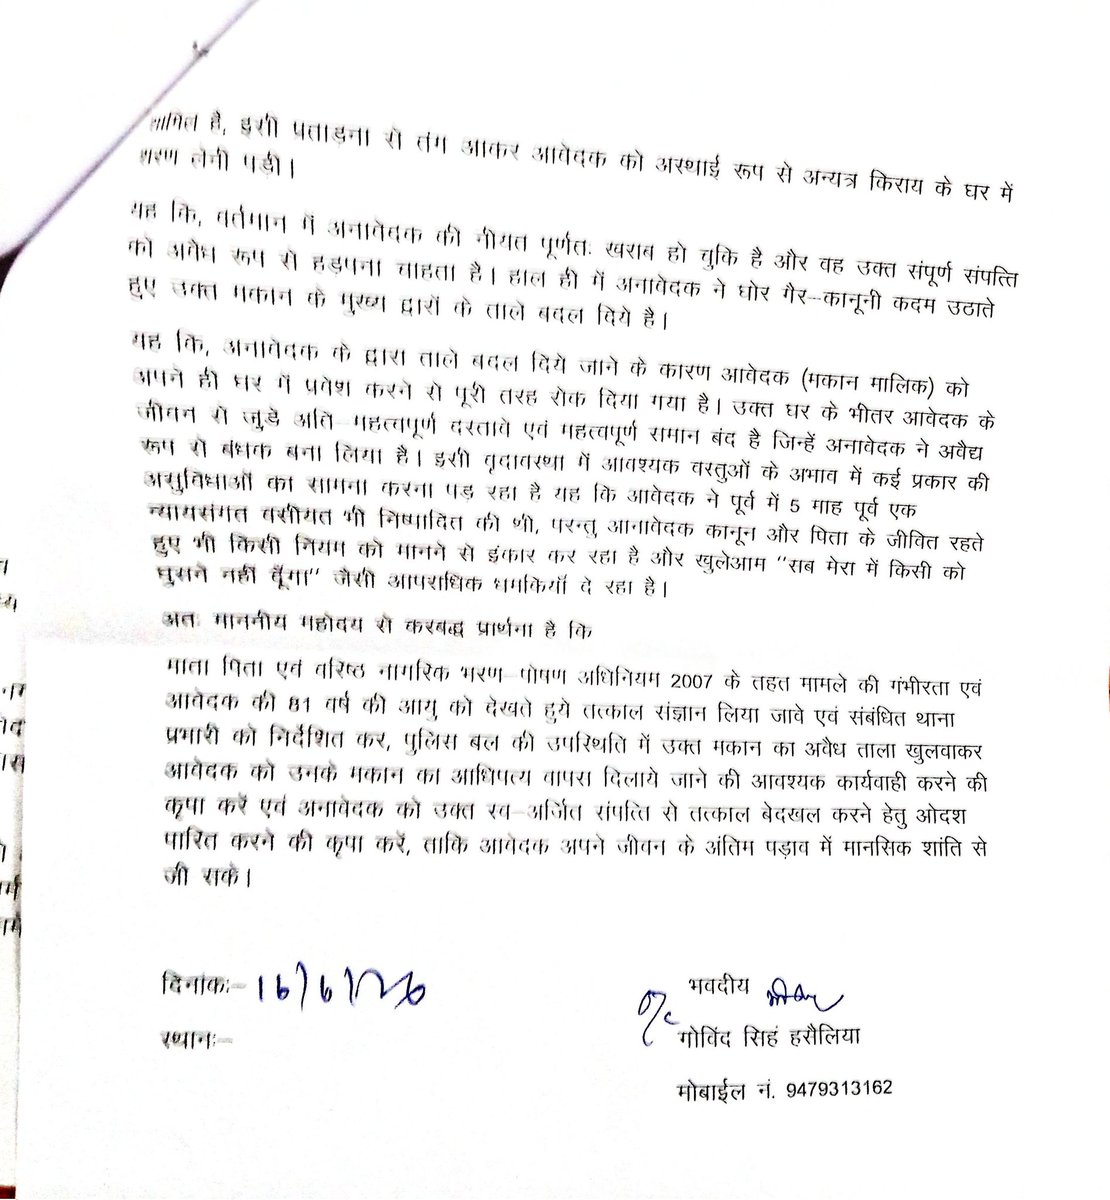 शामिल है, इसी पताड़ना से तंग आकर आवेदक को अस्थाई रूप से अन्यत्र किराय के घर में
शरण लेनी पड़ी।
यह कि, वर्तमान में अनावेदक की नीयत पूर्णतः खराब हो चुकि है और वह उक्त संपूर्ण संपत्ति
को अवैध रूप से हड़पना चाहता है। हाल ही में अनावेदक ने घोर गैर–कानूनी कदम उठाते
हुए उक्त मकान के मुख्य द्वारों के ताले बदल दिये है।
यह कि, अनावेदक के द्वारा ताले बदल दिये जाने के कारण आवेदक (मकान मालिक) को
अपने ही घर में प्रवेश करने से पूरी तरह रोक दिया गया है। उक्त घर के भीतर आवेदक के
जीवन से जुडे अति–महत्वपूर्ण दस्तावे एवं महत्वपूर्ण समान बंद है जिन्हें अनावेदक ने अवैद्य
रूप से बंधक बना लिया है। इसी वृदावस्था में आवश्यक वस्तुओं के अभाव में कई प्रकार की
असुविधाओं का सामना करना पड रहा है यह कि आवेदक ने पूर्व में 5 माह पूर्व एक
न्यायसंगत वसीयत भी निष्पादित की थी, परन्तु आनावेदक कानून और पिता के जीवित रहते
हुए भी किसी नियम को मानने से इंकार कर रहा है और खुलेआम "सब मेरा में किसी को
घुसने नहीं दूँगा" जैसी आपराधिक धमकियाँ दे रहा है।
अतः माननीय महोदय से करबद्ध प्रार्थना है कि
माता पिता एवं वरिष्ठ नागरिक भरण–पोषण अधिनियम 2007 के तहत मामले की गंभीरता एवं
आवेदक की 81 वर्ष की आयु को देखते हुये तत्काल संज्ञान लिया जावे एवं संबंधित थाना
प्रभारी को निर्देशित कर, पुलिस बल की उपस्थिति में उक्त मकान का अवैध ताला खुलवाकर
आवेदक को उनके मकान का आधिपत्य वापस दिलाये जाने की आवश्यक कार्यवाही करने की
कृपा करें एवं अनावेदक को उक्त स्व–अर्जित संपत्ति से तत्काल बेदखल करने हेतु ओदश
पारित करने की कृपा करें, ताकि आवेदक अपने जीवन के अंतिम पड़ाव में मानसिक शांति से
जी सके।
दिनांकः– 16/6/26
भवदीय
स्थानः–
गोविंद सिहं हसैलिया
मोबाईल नं. 9479313162